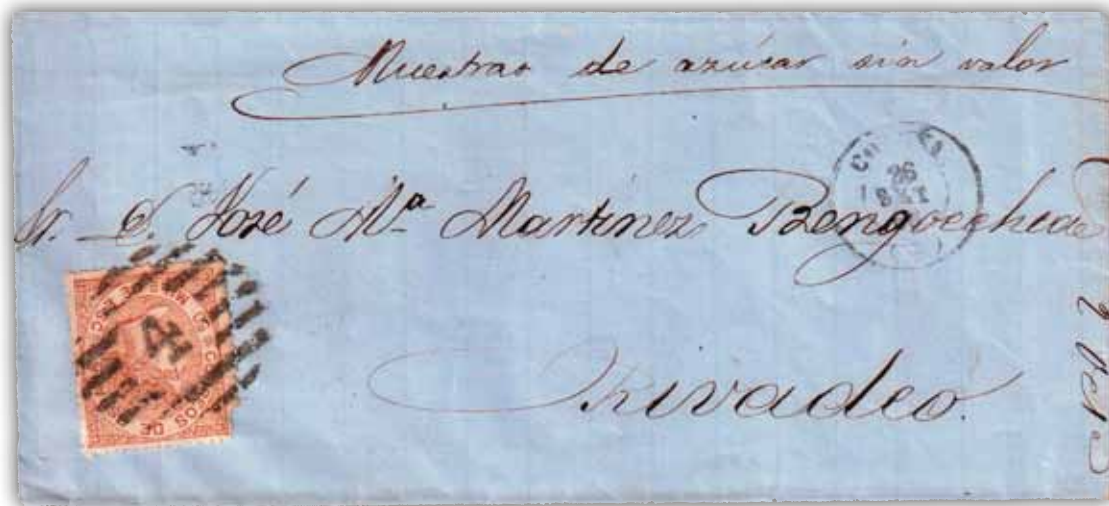 Muestras de azúcar sin valor
26
Sr. D. José Mª Martinez Bengoechea
4
Rivadeo.